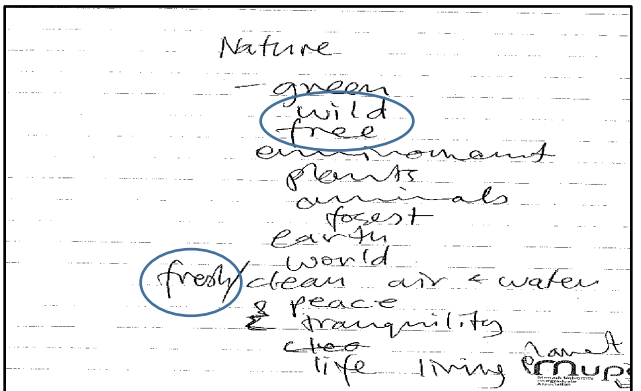 Nature
- green
wild
free
environment
plants
animals
forest
earth
world
fresh/clean air & water
& peace
& tranquility
life living planet
mup